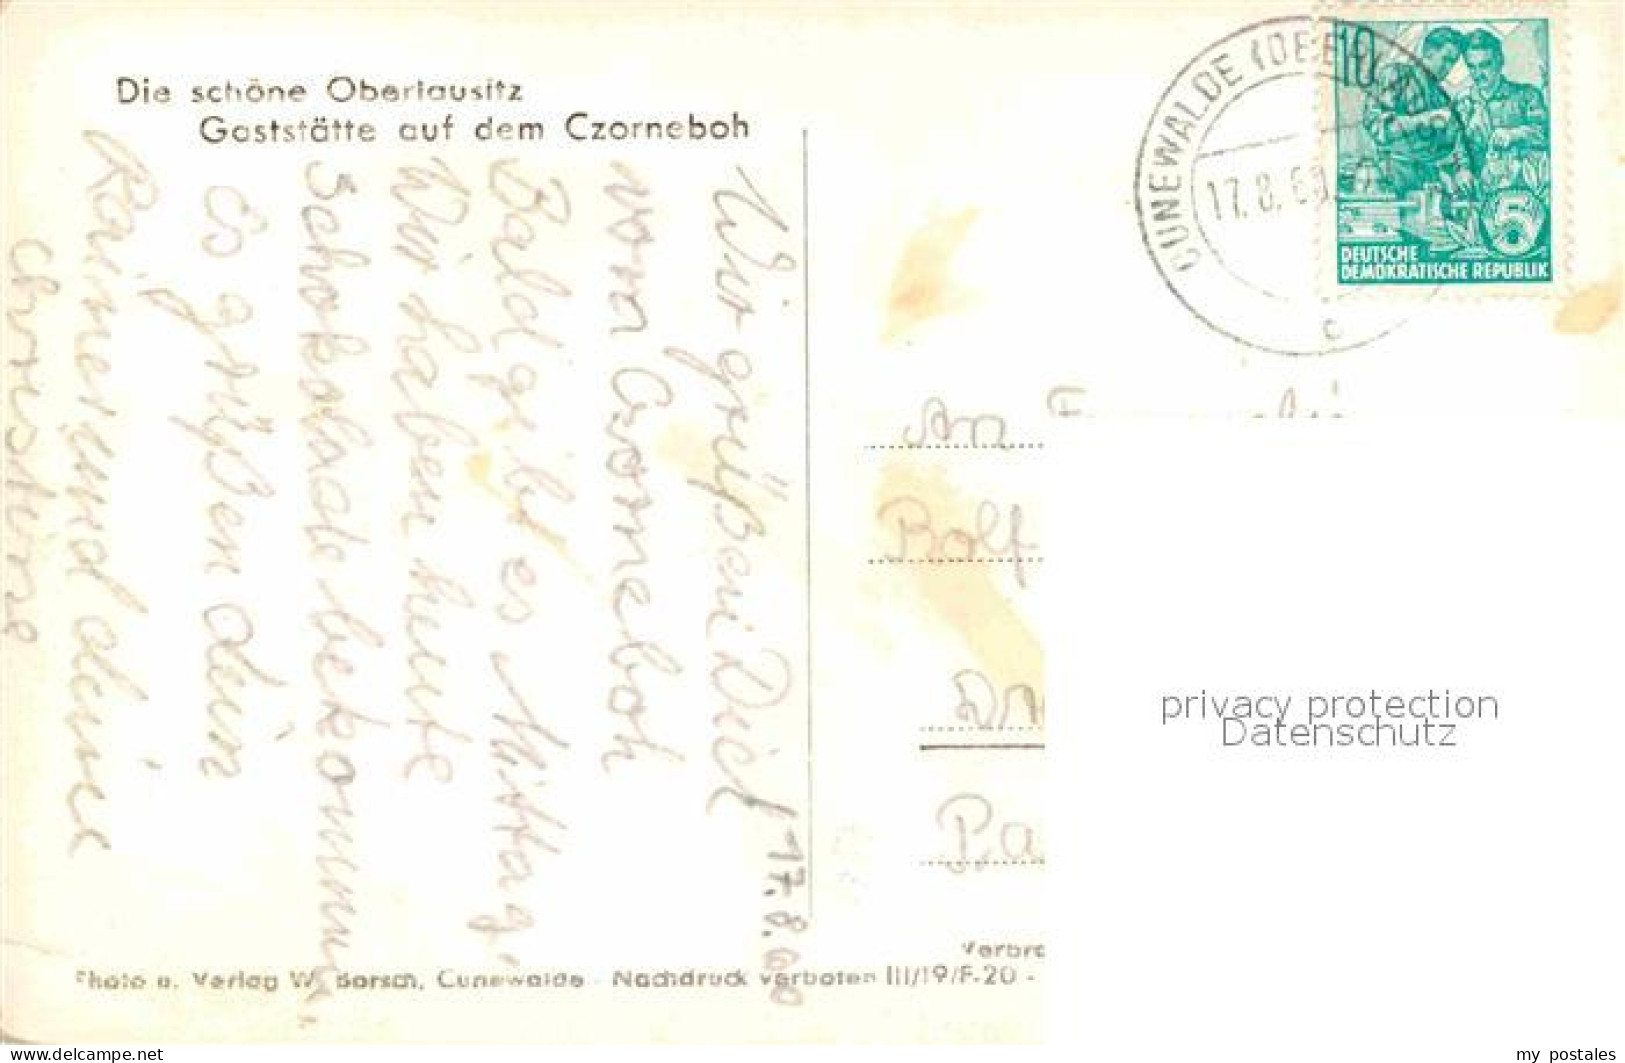 Die schöne Oberlausitz
Gaststätte auf dem Czorneboh
Wir grüßen Dich
vom Czorneboh
Bald gebt es Mittag.
Wir haben heute
Schokolade bekommen.
Es grüßen dein
Rainer und deine
Christine
17.8.60
CUNEWALDE (OBERLAUSITZ)
17.8.60
c
10
5
DEUTSCHE
DEMOKRATISCHE REPUBLIK
An
Rolf
Pa
privacy protection
Datenschutz
Verbra
Photo u. Verlag W. Borsch, Cunewalde - Nachdruck verboten III/19/F-20 -
www.delcampe.net
my_postales